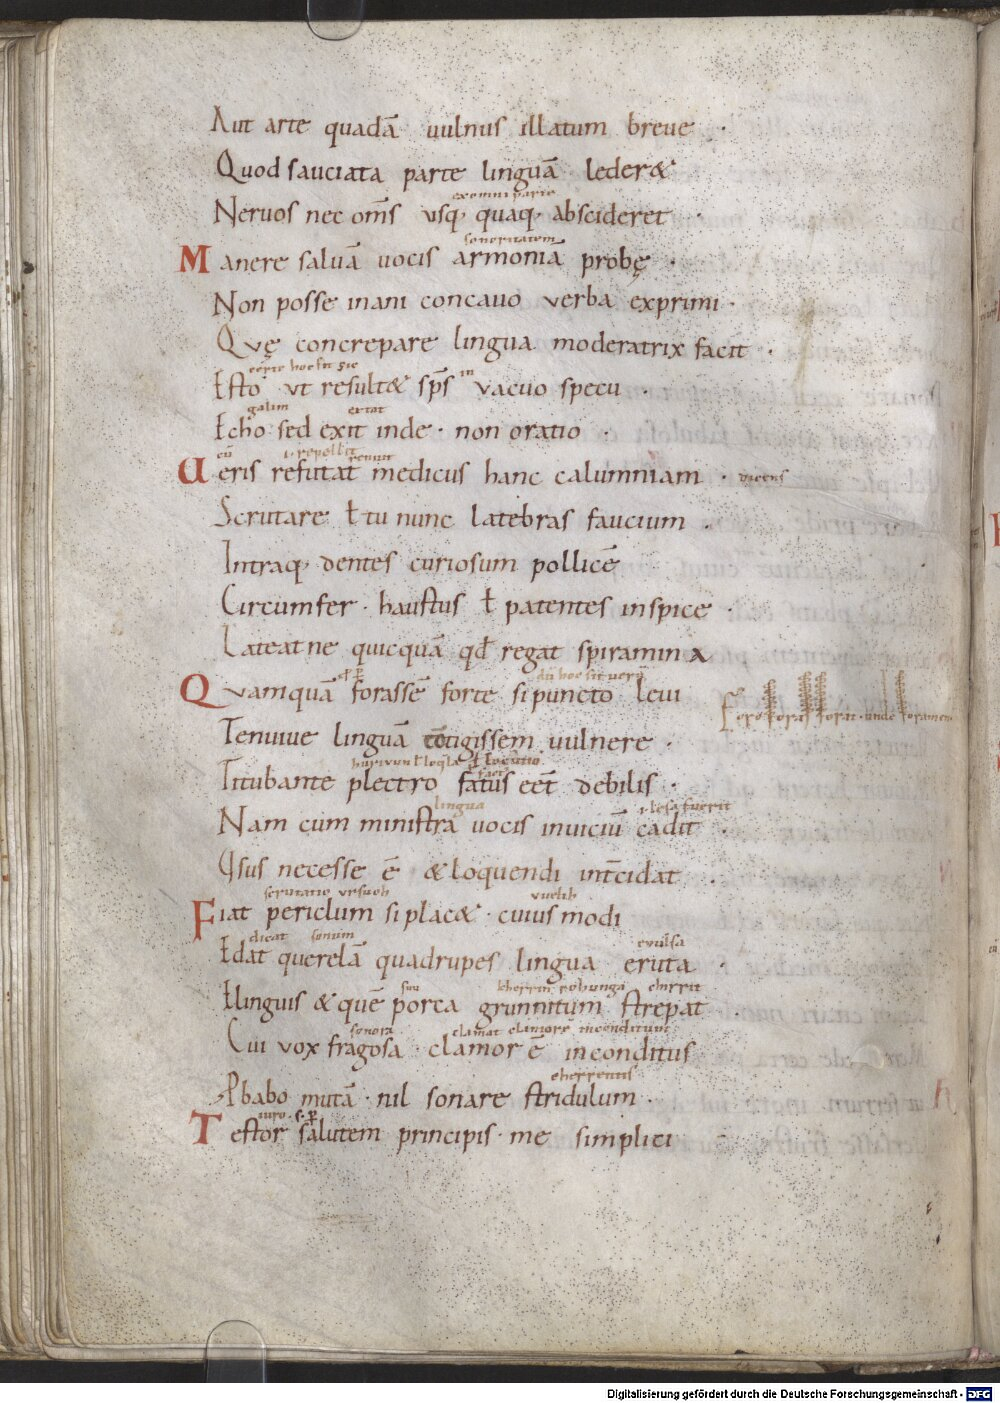 Aut arte quadā uulnus illatum breue ·
Quod sauciata parte linguā lederæ
ex omni parte
Neruos nec oms̄ usq; quaq; abscideret ·
sonoritatem
Manere saluā uocis armoniā probę ·
Non posse inani concauo verba exprimi ·
Quę concrepare lingua moderatrix facit ·
certe hoc sit sic in
Esto ut resultæ sp̄s vacuo specu ·
galm
Echo sed exit inde · non oratio ·
Ueris refutat medicus hanc calumniam · dicens
Scrutare ł tu nunc latebras faucium ·
Intraq; dentes curiosum pollicē
Circumfer · haustus ł patentes inspice ·
Lateat ne quicquā qđ regat spiramina
Quamquā forassē forte si puncto leui
Foro foras forat · unde foramen
Tenuiue linguā cōtigissem uulnere ·
Titubante plectro fatus eēt debilis ·
lingua lesa fuerit
Nam cum ministra uocis in uiciū cadit ·
Usus necesse ē & loquendi intcidat ·
Fiat periclum si placæ · cuius modi
dicat sonum evulsa
Edat querelā quadrupes lingua eruta ·
Elinguis & quē porca grunnitum strepat ·
sonora clamat clamore inconditum
Cui vox fragosa · clamor ē inconditus
Pbabo mutā · nil sonare stridulum ·
iuro
Testor salutem principis · me simplici
Digitalisierung gefördert durch die Deutsche Forschungsgemeinschaft - DFG